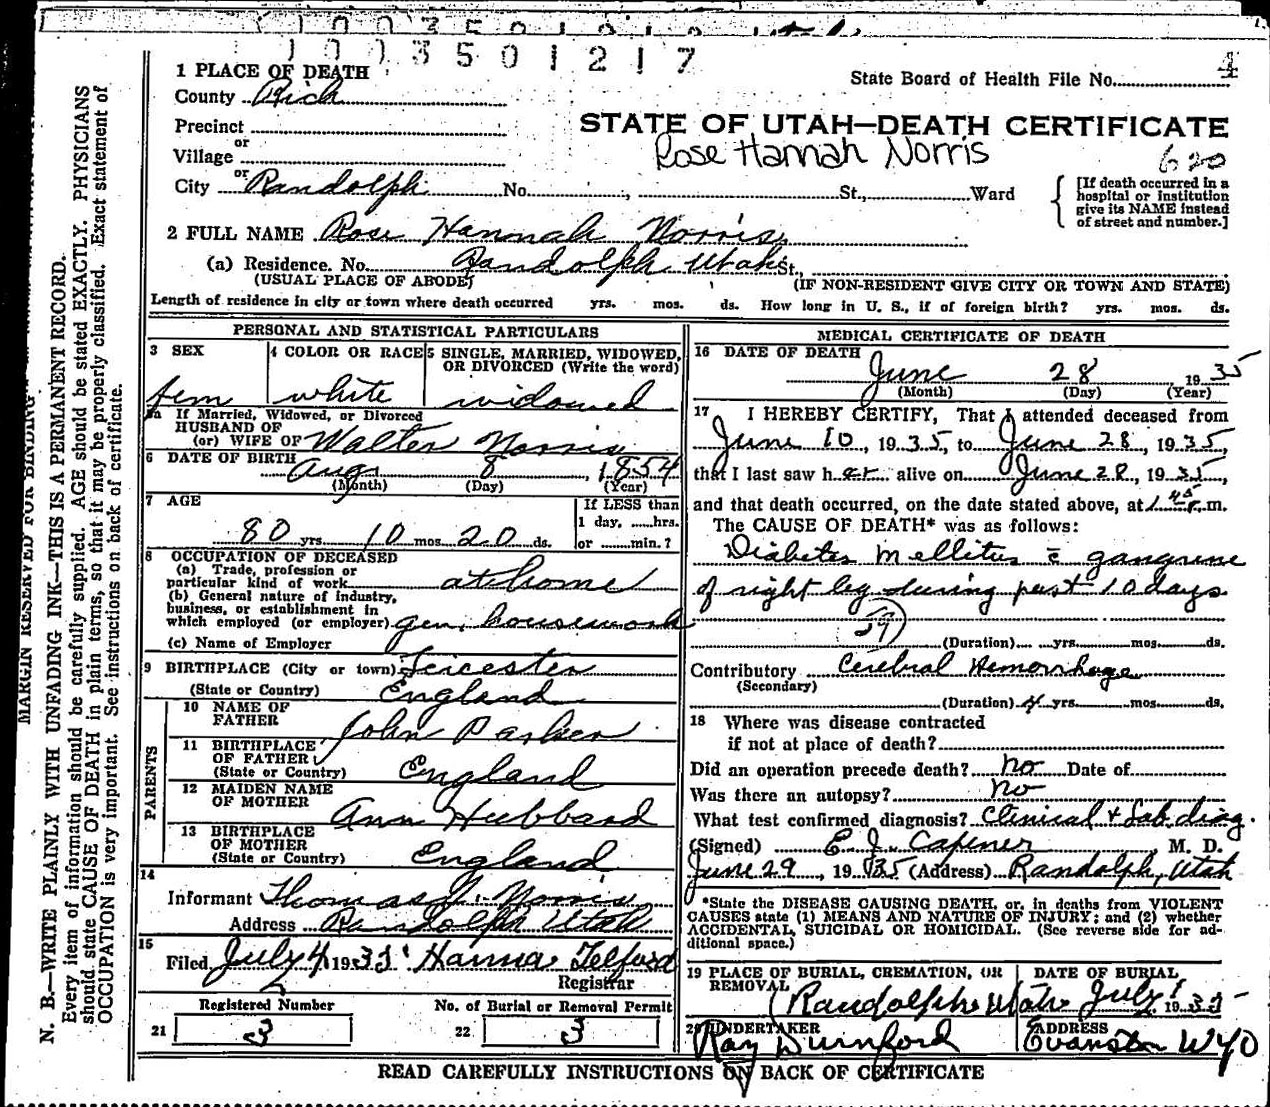 1003501217
1 PLACE OF DEATH
State Board of Health File No. 4
County Rich
Precinct
or
Village
STATE OF UTAH—DEATH CERTIFICATE
Rose Hannah Norris
620
City or Randolph No. , St., Ward
[If death occurred in a
hospital or institution
give its NAME instead
of street and number.]
2 FULL NAME Rose Hannah Norris
(a) Residence. No. Randolph Utah St.,
(USUAL PLACE OF ABODE) (IF NON-RESIDENT GIVE CITY OR TOWN AND STATE)
Length of residence in city or town where death occurred yrs. mos. ds. How long in U. S., if of foreign birth? yrs. mos. ds.
PERSONAL AND STATISTICAL PARTICULARS
3 SEX 4 COLOR OR RACE 5 SINGLE, MARRIED, WIDOWED,
OR DIVORCED (Write the word)
fem white widowed
5a If Married, Widowed, or Divorced
HUSBAND OF
(or) WIFE OF Walter Norris
6 DATE OF BIRTH Aug 8, 1854
(Month) (Day) (Year)
7 AGE
80 yrs 10 mos 20 ds.
If LESS than
1 day, ......hrs.
or ......min.?
8 OCCUPATION OF DECEASED
(a) Trade, profession or
particular kind of work at home
(b) General nature of industry,
business, or establishment in
which employed (or employer) gen. housework
(c) Name of Employer
9 BIRTHPLACE (City or town) Leicester
(State or Country) England
PARENTS
10 NAME OF
FATHER John Parker
11 BIRTHPLACE
OF FATHER
(State or Country) England
12 MAIDEN NAME
OF MOTHER Ann Hubbard
13 BIRTHPLACE
OF MOTHER
(State or Country) England
14
Informant Thomas J. Norris
Address Randolph Utah
15
Filed July 4 1935 Hanna Telford
Registrar
Registered Number No. of Burial or Removal Permit
21 3 22 3
MEDICAL CERTIFICATE OF DEATH
16 DATE OF DEATH
June 28 1935
(Month) (Day) (Year)
17 I HEREBY CERTIFY, That I attended deceased from
June 10, 1935, to June 28, 1935,
that I last saw her alive on June 28, 1935,
and that death occurred, on the date stated above, at 1 45 P.m.
The CAUSE OF DEATH* was as follows:
Diabetes mellitus c̄ gangrene
of right leg during past 10 days
59
(Duration) yrs. mos. ds.
Contributory Cerebral Hemorrhage
(Secondary)
(Duration) 4 yrs. mos. ds.
18 Where was disease contracted
if not at place of death?
Did an operation precede death? no Date of
Was there an autopsy? no
What test confirmed diagnosis? Clinical + Lab. diag.
(Signed) E. J. Capener, M. D.
June 29, 1935 (Address) Randolph, Utah
*State the DISEASE CAUSING DEATH, or, in deaths from VIOLENT
CAUSES state (1) MEANS AND NATURE OF INJURY; and (2) whether
ACCIDENTAL, SUICIDAL OR HOMICIDAL. (See reverse side for ad-
ditional space.)
19 PLACE OF BURIAL, CREMATION, OR
REMOVAL
Randolph Utah
DATE OF BURIAL
July 1 1935
20 UNDERTAKER
Ray Durnford
ADDRESS
Evanston Wyo
READ CAREFULLY INSTRUCTIONS ON BACK OF CERTIFICATE
MARGIN RESERVED FOR BINDING
N. B.—WRITE PLAINLY WITH UNFADING INK—THIS IS A PERMANENT RECORD.
Every item of information should be carefully supplied. AGE should be stated EXACTLY. PHYSICIANS
should state CAUSE OF DEATH in plain terms, so that it may be properly classified. Exact statement of
OCCUPATION is very important. See instructions on back of certificate.